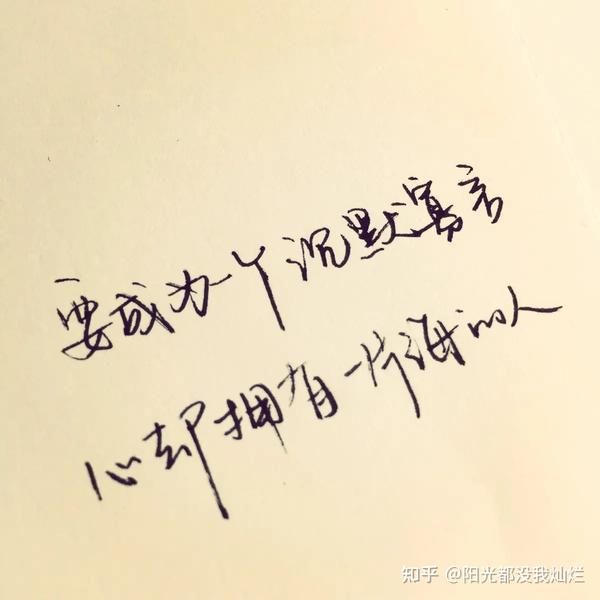 要成为一个沉默寡言
心却拥有一片海的人
知乎 @阳光都没我灿烂